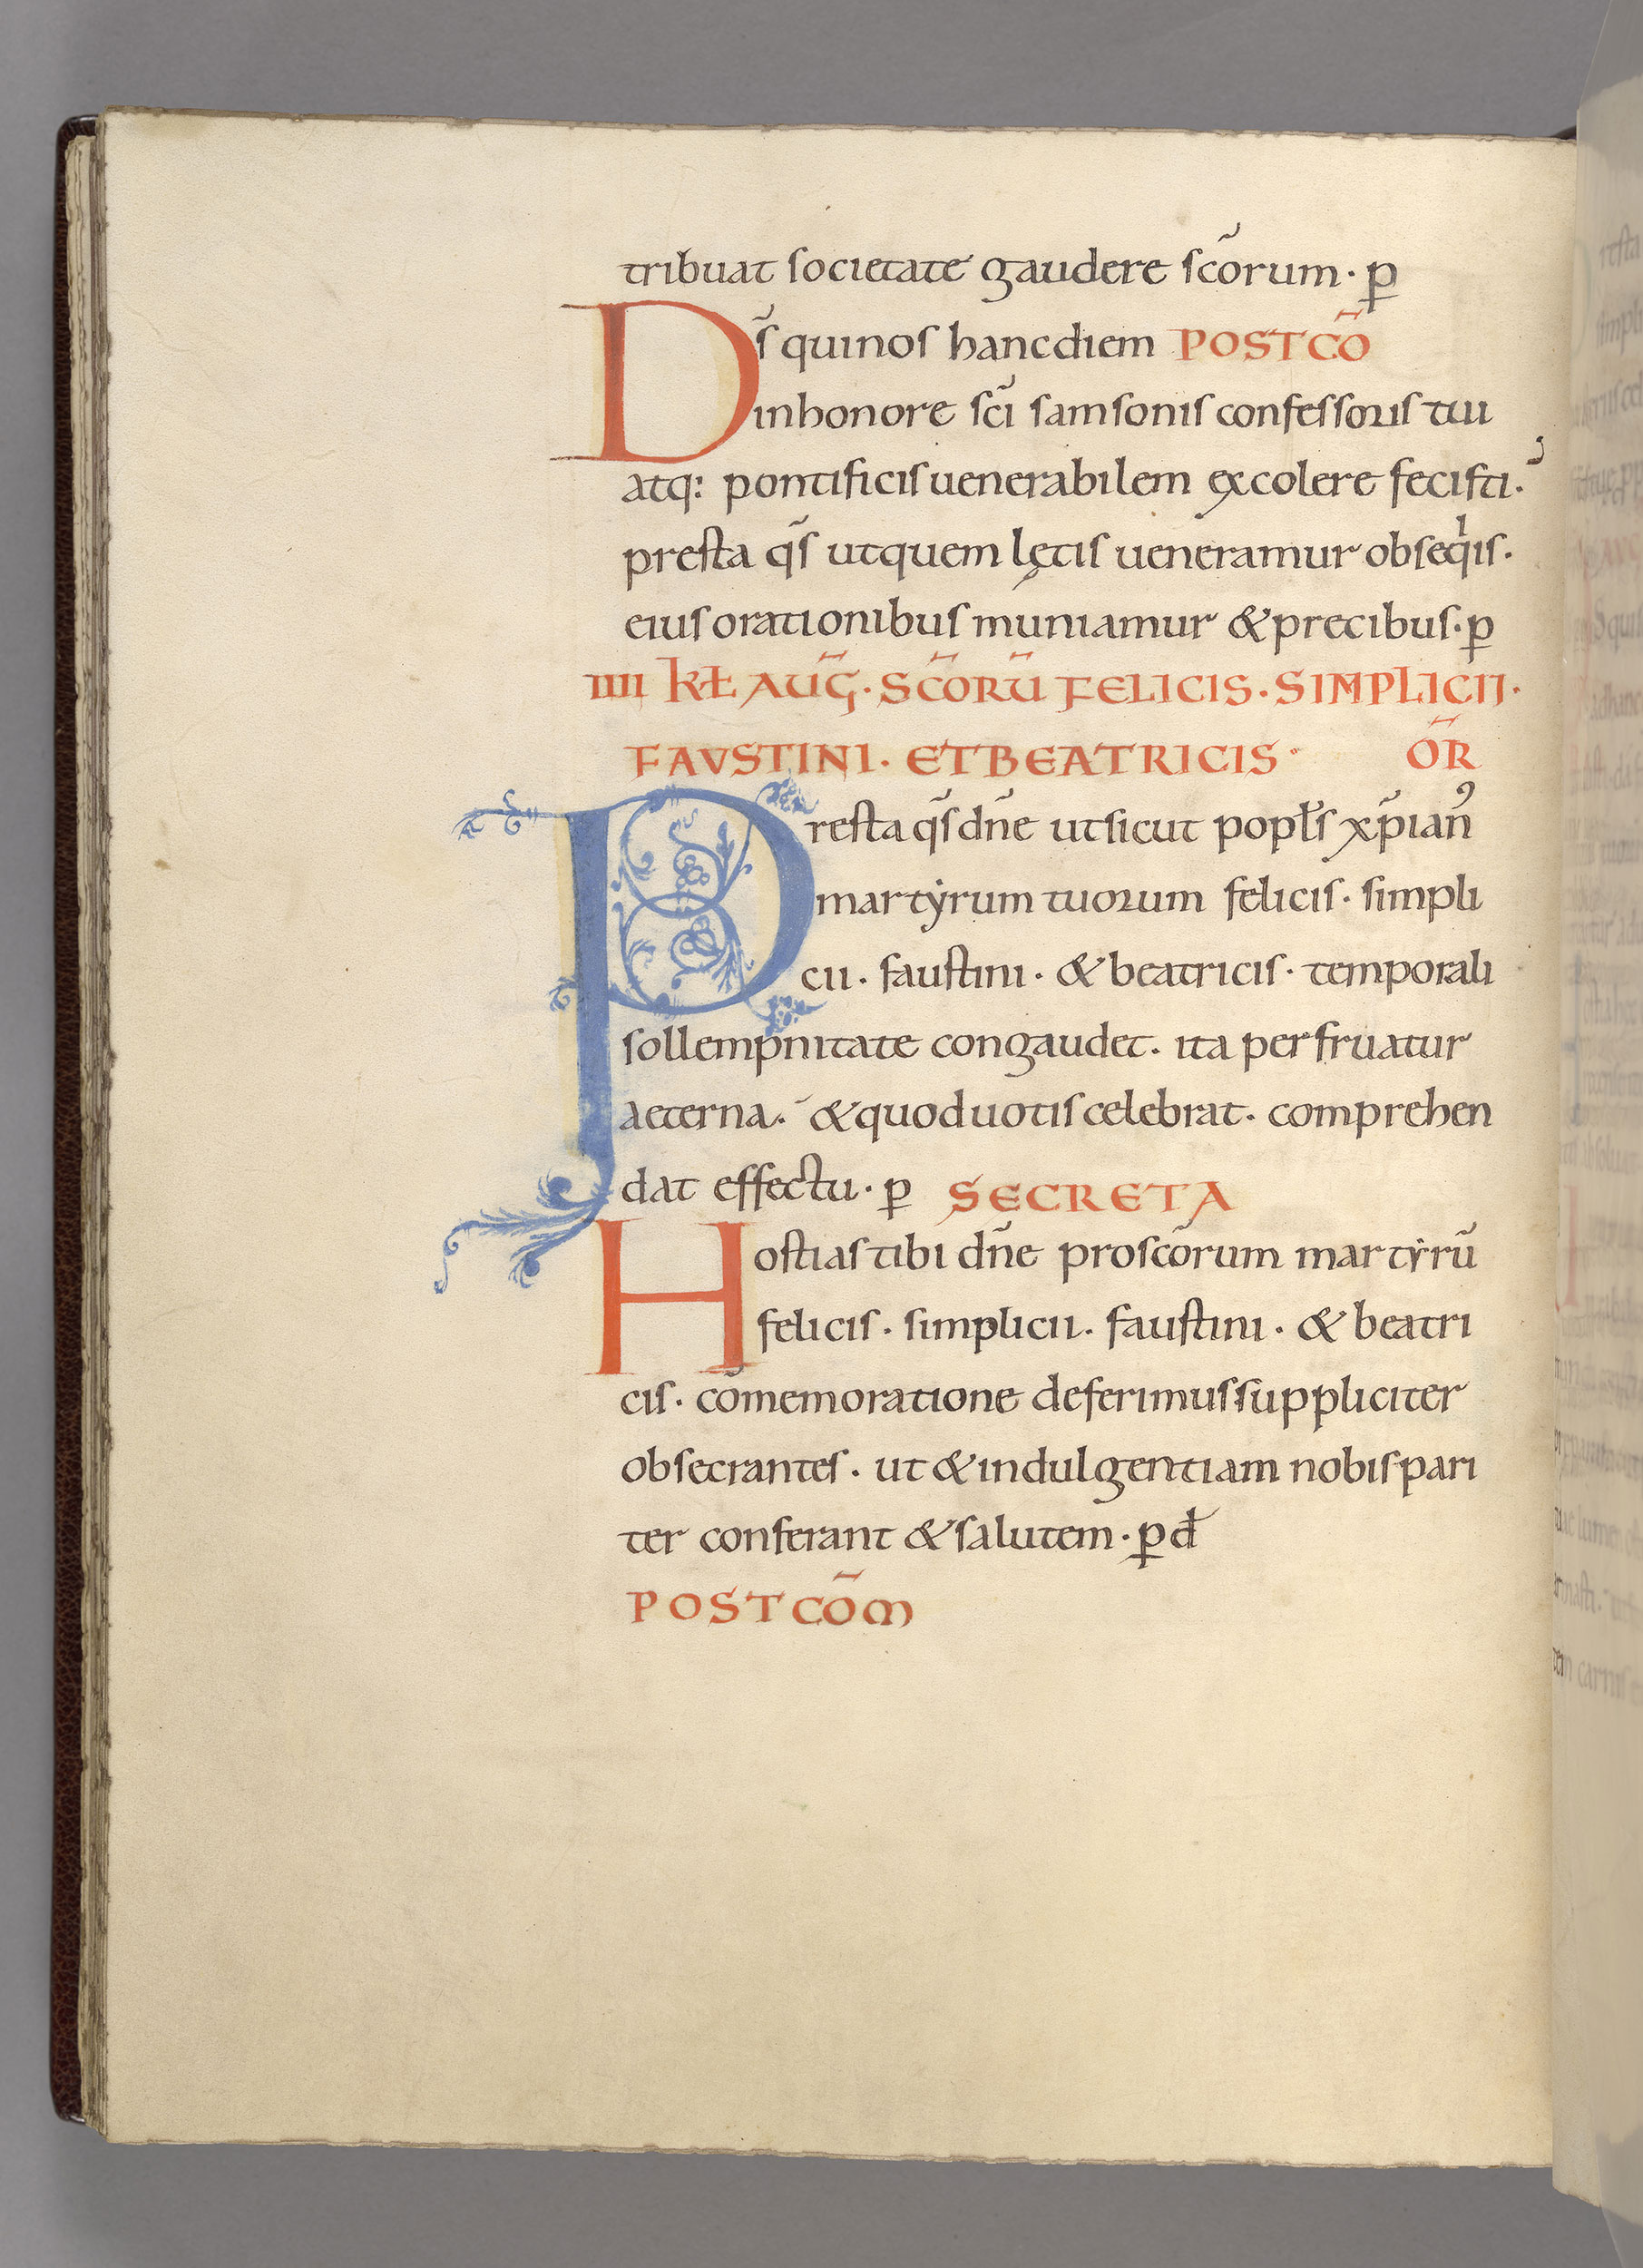 tribuat societate gaudere sc̃orum· p̱
Ds̃ quinos hanc diem POSTCÕ
inhonore sc̃i samsonis confessoris tui
atq: pontificis uenerabilem excolere fecisti·
presta qs̃ utquem lętis ueneramur obseqͥis·
eius orationibus muniamur & precibus· p̱
IIII KŁ AUG̃· SC̃ORŨ FELICIS· SIMPLICII·
FAVSTINI· ET BEATRICIS· OR̃
Presta qs̃ dñe utsicut popłs xp̃ianꝰ
martẏrum tuorum felicis· simpli
cii· faustini· & beatricis· temporali
sollempnitate congaudet· ita perfruatur
aeterna· & quod uotis celebrat· comprehen
dat effectu· p̱ SECRETA
Hostias tibi dñe pro sc̃orum martẏrũ
felicis· simplicii· faustini· & beatri
cis· cõmemoratione deferimus suppliciter
obsecrantes· ut & indulgentiam nobis pari
ter conferant & salutem· p̱ đ
POST CÕM